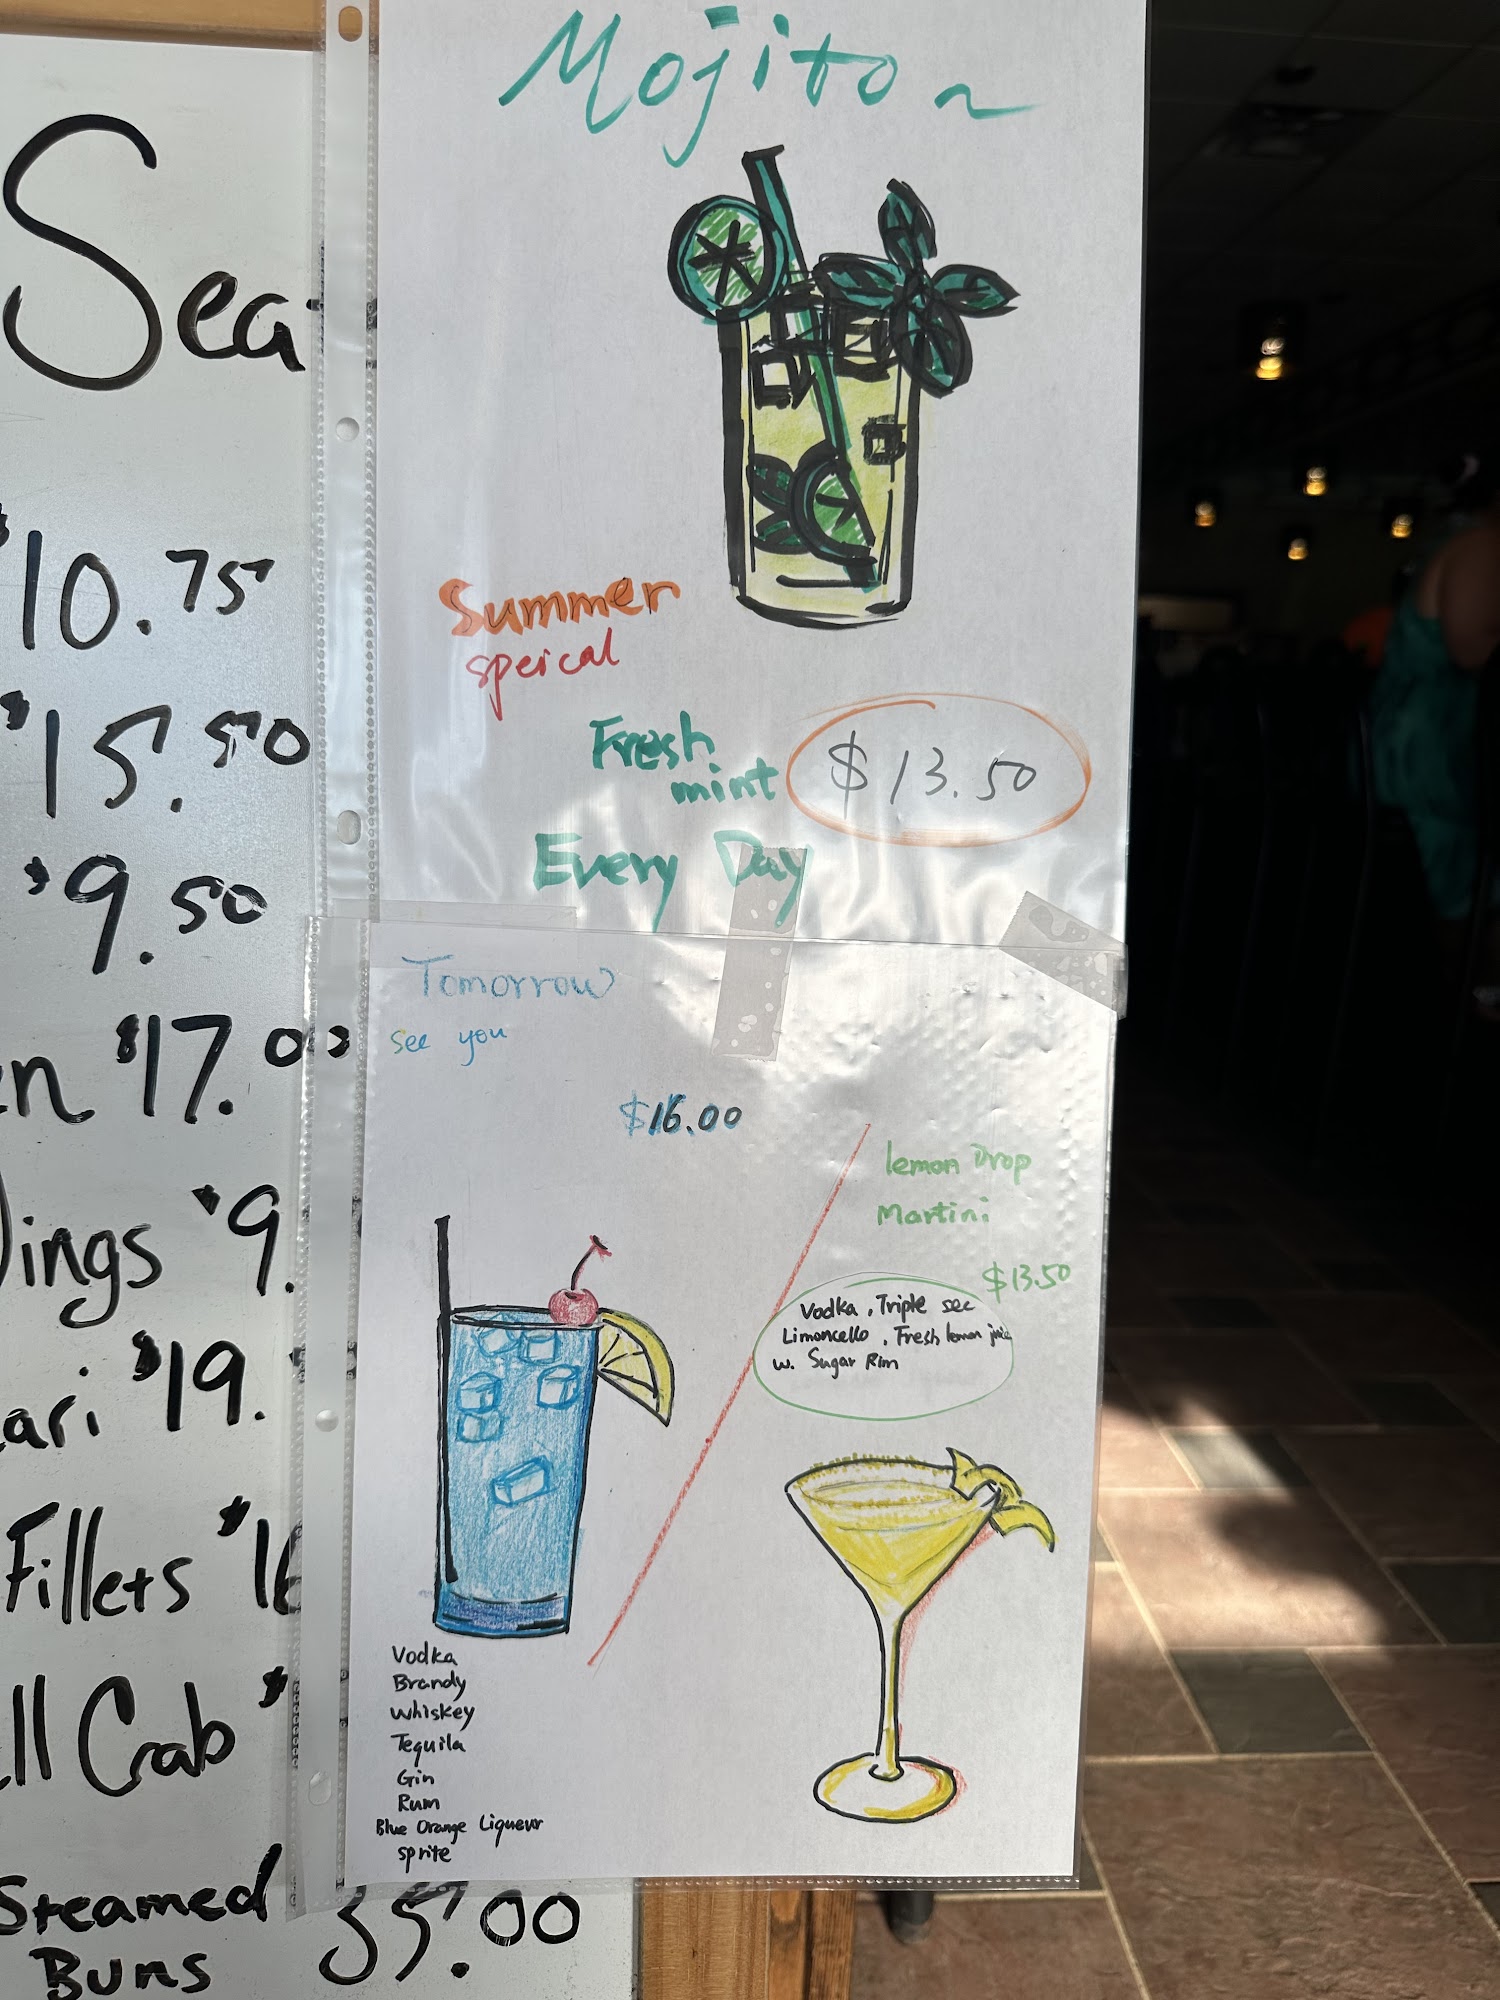 Mojito ~
Summer
speical
Fresh
mint
$13.50
Every Day
Tomorrow
see you
$16.00
Vodka
Brandy
Whiskey
Tequila
Gin
Rum
Blue Orange Liqueur
sprite
lemon Drop
Martini
$13.50
Vodka, Triple sec
Limoncello, Fresh lemon juic
w. Sugar Rim
Sea
$10.75
$15.50
$9.50
en $17.00
ings $9.
ari $19.
Fillets $16
ll Crab $
Steamed
Buns 35.00